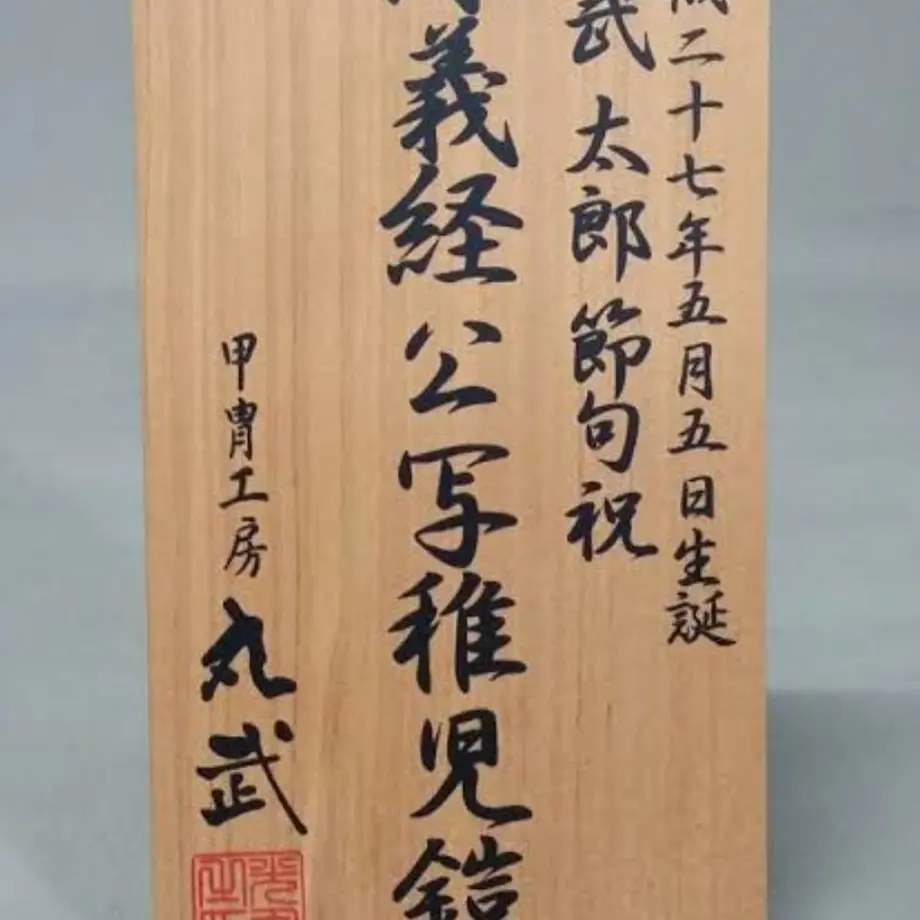 二十七年五月五日生誕
武 太郎節句祝
義経公写稚児鎧
甲冑工房 丸武